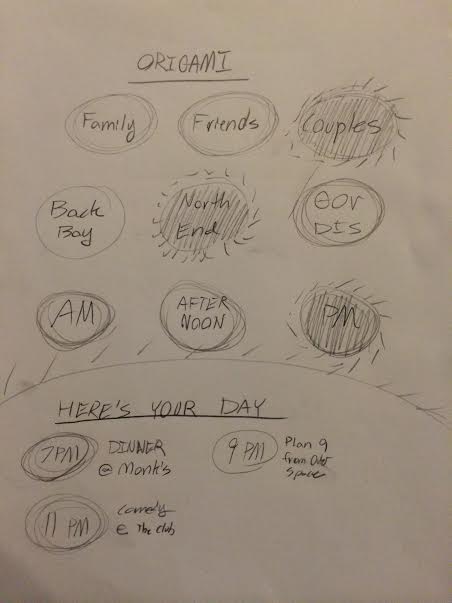 ORIGAMI
Family Friends Couples
Back
Bay
North
End
GOV
DIS
AM
AFTER
NOON
PM
HERE'S YOUR DAY
7PM
DINNER
@ Monk's
9 PM
Plan 9
from Outer
Space
11 PM
Comedy
@ The Club